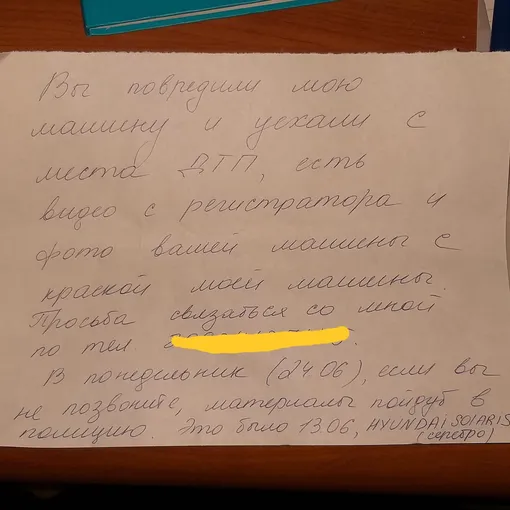 Вы повредили мою
машину и уехали с
места ДТП, есть
видео с регистратора и
фото вашей машины с
краской моей машины.
Просьба связаться со мной
по тел.
В понедельник (24.06), если вы
не позвоните, материалы пойдут в
полицию. Это было 13.06, HYUNDAI SOLARIS
(серебро)